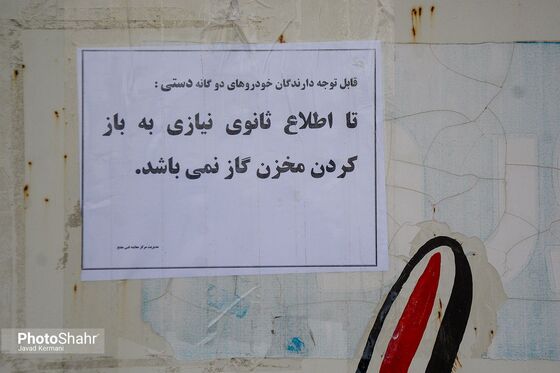 قابل توجه دارندگان خودروهای دو گانه دستی :
تا اطلاع ثانوی نیازی به باز
کردن مخزن گاز نمی باشد.
مدیریت مرکز معاینه فنی
PhotoShahr
Javad Kermani